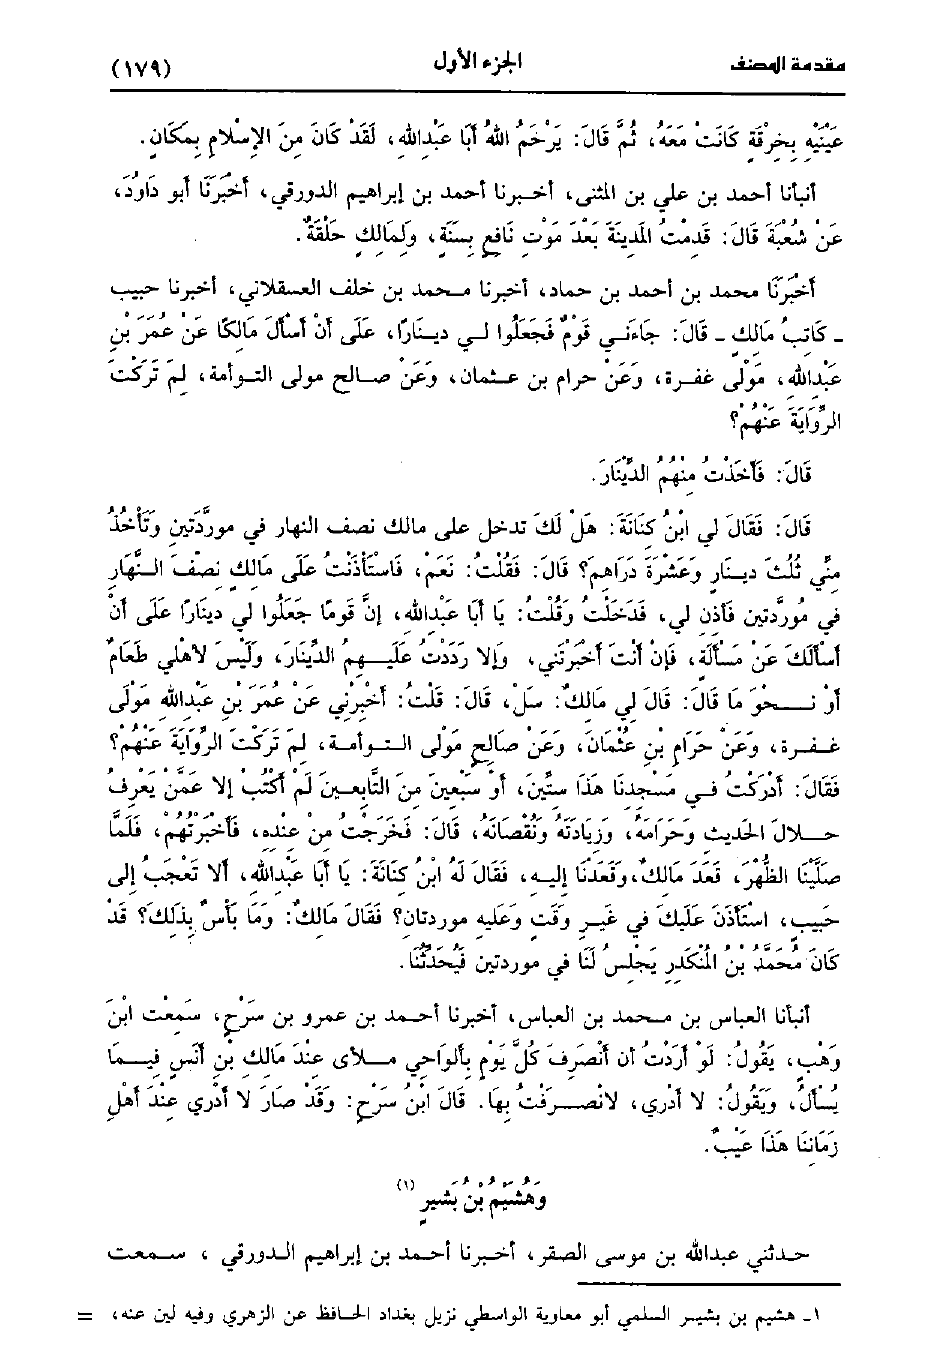 مقدمة المصنف الجزء الأول (١٧٩)
عَيْنَيْهِ بِخِرْقَةٍ كَانَتْ مَعَهُ، ثُمَّ قَالَ: يَرْحَمُ اللهُ أَبَا عَبْدِاللهِ، لَقَدْ كَانَ مِنَ الإِسْلَامِ بِمَكَانٍ.
أنبأنا أحمد بن علي بن المثنى، أخبرنا أحمد بن إبراهيم الدورقي، أَخْبَرَنَا أَبو دَاوُدَ،
عَنْ شُعْبَةَ قَالَ: قَدِمْتُ المَدِينَةَ بَعْدَ مَوْتِ نَافِعٍ بِسَنَةٍ، وَلِمَالِكٍ حَلْقَةٌ.
أَخْبَرَنَا محمد بن أحمد بن حماد، أخبرنا محمد بن خلف العسقلاني، أخبرنا حبيب
ـ كَاتِبُ مَالك ـ قَالَ: جَاءَنِي قَوْمٌ فَجَعَلُوا لِي دِينَارًا، عَلَى أَنْ أَسْأَلَ مَالِكًا عَنْ عُمَرَ بْنِ
عَبْدِاللهِ، مَوْلَى غفرة، وَعَنْ حرام بن عثمان، وَعَنْ صالح مولى التوأمة، لِمَ تَرَكْتَ
الرِّوَايَةَ عَنْهُمْ؟
قَالَ: فَأَخَذْتُ مِنْهُمُ الدِّينَارَ.
قَالَ: فَقَالَ لي ابْنُ كِنَانَةَ: هَلْ لَكَ تدخل على مالك نصف النهار في مورَّدتين وَتَأْخُذُ
مِنِّي ثُلُثَ دِينارٍ وَعَشْرَةَ دَرَاهِمَ؟ قَالَ: فَقُلْتُ: نَعَمْ، فَاسْتَأْذَنْتُ عَلَى مَالِك نِصْفَ النَّهَارِ
فِي مُوَرَّدتين فَأَذِنَ لي، فَدَخَلْتُ وَقُلْتُ: يَا أَبَا عَبْدِاللهِ، إِنَّ قَومًا جَعَلُوا لِي دِينَارًا عَلَى أَنْ
أَسْأَلَكَ عَنْ مَسْأَلَةٍ، فَإِنْ أَنْتَ أَخْبَرْتَنِي، وَإِلا رَدَدْتُ عَلَيْهِمُ الدِّينَارَ، وَلَيْسَ لأَهْلِي طَعَامٌ
أَوْ نَحْوَ مَا قَالَ: قَالَ لِي مَالكٌ: سَلْ، قَالَ: قُلْتُ: أَخْبِرْنِي عَنْ عُمَرَ بْنِ عَبْدِاللهِ مَوْلَى
غفرة، وَعَنْ حَرَامِ بْنِ عُثْمَانَ، وَعَنْ صَالِحٍ مَوْلَى التوأمة، لِمَ تَرَكْتَ الرِّوَايَةَ عَنْهُمْ؟
فَقَالَ: أَدْرَكْتُ فِي مَسْجِدِنَا هَذَا سِتِّينَ، أَوْ سَبْعِينَ مِنَ التَّابِعِينَ لَمْ أَكْتُبْ إِلا عَمَّنْ يَعْرِفُ
حَلالَ الحَدِيثِ وَحَرَامَهُ، وَزِيَادَتَهُ وَنُقْصَانَهُ، قَالَ: فَخَرَجْتُ مِنْ عِنْدِهِ، فَأَخْبَرْتُهُمْ، فَلَمَّا
صَلَّيْنَا الظُّهْرَ، قَعَدَ مَالِكٌ، وَقَعَدْنَا إِلَيه، فَقَالَ لَهُ ابْنُ كِنَانَةَ: يَا أَبَا عَبْدِاللهِ، أَلا تَعْجَبُ إِلى
حَبِيبٍ، اسْتَأْذَنَ عَلَيْكَ فِي غَيرِ وَقْتٍ وَعَلَيهِ موردتان؟ فَقَالَ مَالكٌ: وَمَا بَأْسٌ بِذَلِكَ؟ قَدْ
كَانَ مُحَمَّدُ بْنُ المُنْكَدِرِ يَجْلِسُ لَنَا في موردتين فَيُحَدِّثُنَا.
أنبأنا العباس بن محمد بن العباس، أخبرنا أحمد بن عمرو بن سَرْحٍ، سَمِعْتُ ابْنَ
وَهْبٍ، يَقُولُ: لَوْ أَرَدْتُ أن أَنْصَرِفَ كُلَّ يَوْمٍ بِأَلْوَاحِي مَلأى عِنْدَ مَالِكِ بْنِ أَنَسٍ فِيمَا
يُسْأَلُ، وَيَقُولُ: لا أَدْرِي، لانْصَرَفْتُ بِهَا. قَالَ ابْنُ سَرْحٍ: وَقَدْ صَارَ لَا أَدْرِي عِنْدَ أَهْلِ
زَمَانِنَا هَذَا عَيْبٌ.
وَهُشَيْمُ بْنُ بَشِيرٍ (١)
حدثني عبدالله بن موسى الصقر، أخبرنا أحمد بن إبراهيم الدورقي ، سمعت
١ـ هشيم بن بشير السلمي أبو معاوية الواسطي نزيل بغداد الحافظ عن الزهري وفيه لين عنه، =